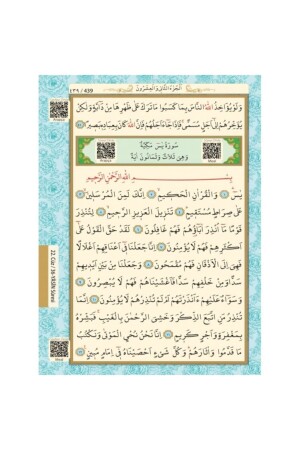 ٤٣٩ / 439 اَلْجُزْءُ الثَّانِي وَالْعِشْرُونَ
وَلَوْ يُؤَاخِذُ اللّٰهُ النَّاسَ بِمَا كَسَبُوا مَا تَرَكَ عَلٰى ظَهْرِهَا مِنْ دَٓابَّةٍ وَلٰكِنْ
يُؤَخِّرُهُمْ اِلٰٓى اَجَلٍ مُسَمًّى فَاِذَا جَٓاءَ اَجَلُهُمْ فَاِنَّ اللّٰهَ كَانَ بِعِبَادِهِ بَصِيرًا ﴿٤٥﴾
سُورَةُ يٰسٓ مَكِّيَّةٌ
وَهِيَ ثَلَاثٌ وَثَمَانُونَ اٰيَةً
بِسْمِ اللّٰهِ الرَّحْمٰنِ الرَّحِيمِ
يٰسٓ ﴿١﴾ وَالْقُرْاٰنِ الْحَكِيمِ ﴿٢﴾ اِنَّكَ لَمِنَ الْمُرْسَلِينَ ﴿٣﴾
عَلٰى صِرَاطٍ مُسْتَقِيمٍ ﴿٤﴾ تَنْزِيلَ الْعَزِيزِ الرَّحِيمِ ﴿٥﴾ لِتُنْذِرَ
قَوْمًا مَٓا اُنْذِرَ اٰبَٓاؤُهُمْ فَهُمْ غَافِلُونَ ﴿٦﴾ لَقَدْ حَقَّ الْقَوْلُ عَلٰٓى
اَكْثَرِهِمْ فَهُمْ لَا يُؤْمِنُونَ ﴿٧﴾ اِنَّا جَعَلْنَا فِٓي اَعْنَاقِهِمْ اَغْلَالًا
فَهِيَ اِلَى الْاَذْقَانِ فَهُمْ مُقْمَحُونَ ﴿٨﴾ وَجَعَلْنَا مِنْ بَيْنِ اَيْدِيهِمْ
سَدًّا وَمِنْ خَلْفِهِمْ سَدًّا فَاَغْشَيْنَاهُمْ فَهُمْ لَا يُبْصِرُونَ ﴿٩﴾
وَسَوَٓاءٌ عَلَيْهِمْ ءَاَنْذَرْتَهُمْ اَمْ لَمْ تُنْذِرْهُمْ لَا يُؤْمِنُونَ ﴿١٠﴾ اِنَّمَا
تُنْذِرُ مَنِ اتَّبَعَ الذِّكْرَ وَخَشِيَ الرَّحْمٰنَ بِالْغَيْبِ فَبَشِّرْهُ
بِمَغْفِرَةٍ وَاَجْرٍ كَرِيمٍ ﴿١١﴾ اِنَّا نَحْنُ نُحْيِ الْمَوْتٰى وَنَكْتُبُ
مَا قَدَّمُوا وَاٰثَارَهُمْ وَكُلَّ شَيْءٍ اَحْصَيْنَاهُ فِٓي اِمَامٍ مُبِينٍ ﴿١٢﴾
22. Cüz / 36-YÂSÎN Sûresi